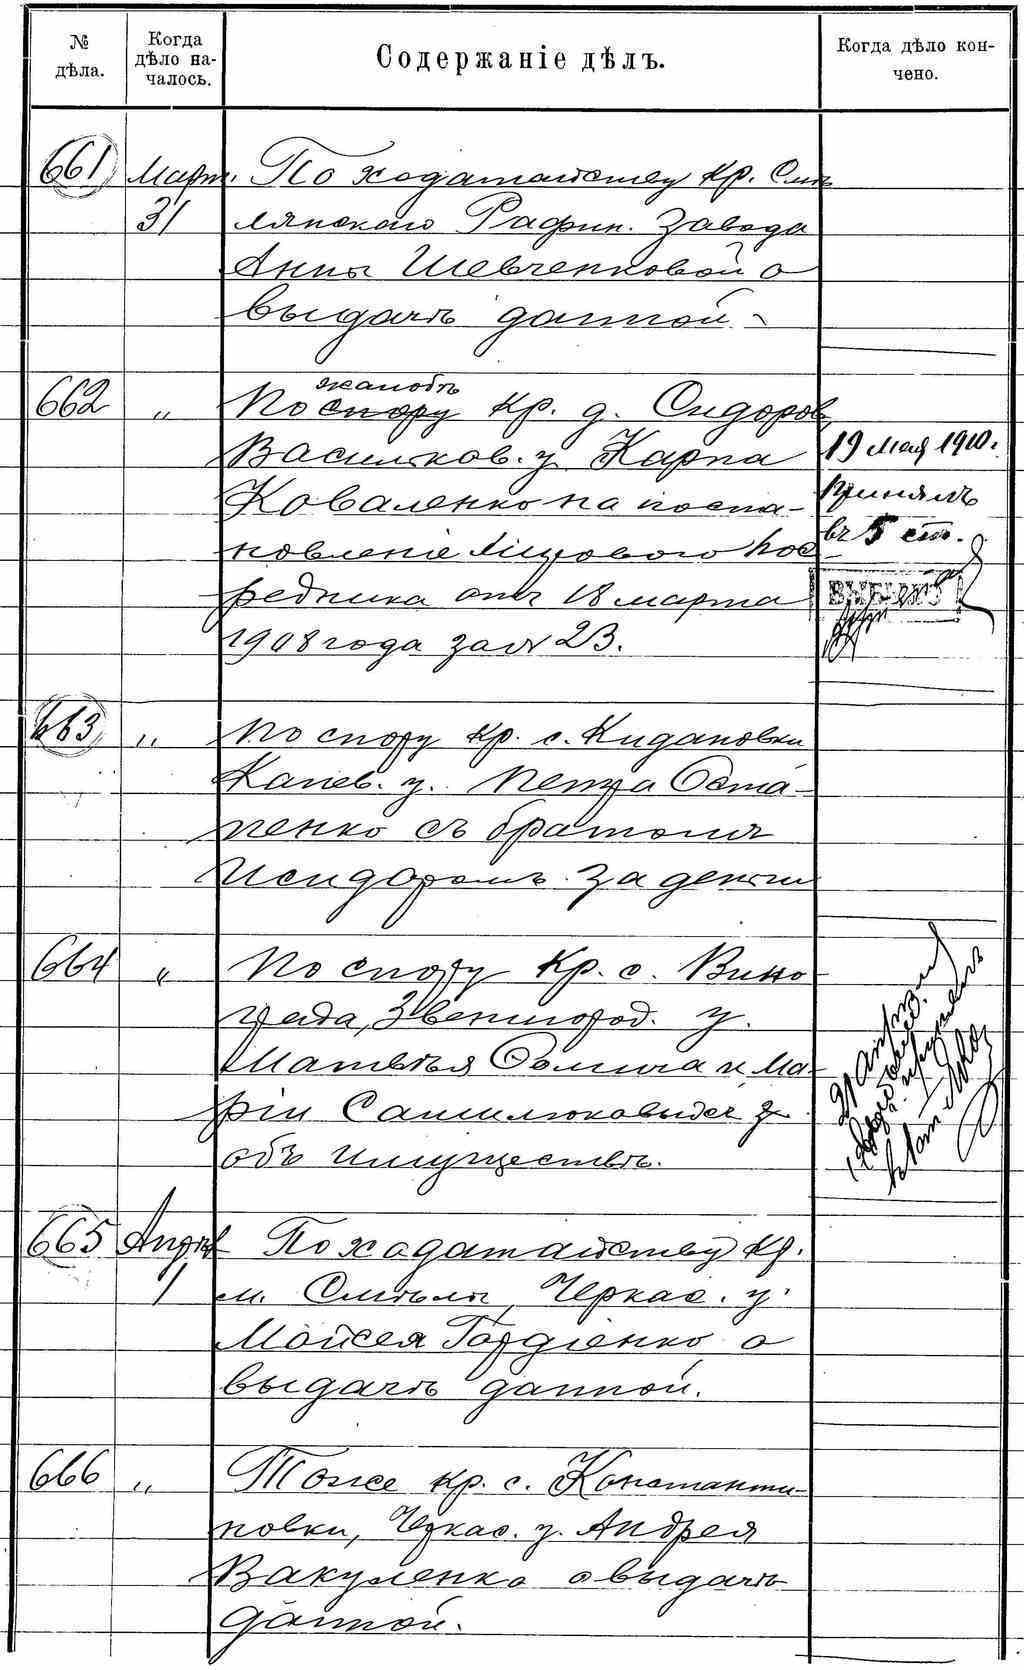 № дѣла.
Когда дѣло на-
чалось.
Содержаніе дѣлъ.
Когда дѣло кон-
чено.
661 Март. По ходатайству кр. Смѣ-
31 лянскаго Рафин. завода
Анны Шевченковой о
выдачѣ данной
662 " По жалобѣ спору кр. д. Сидоров,
Васильков. у. Карпа
Коваленко на поста-
новленіе Мирового пос-
редника отъ 18 марта
1908 года за № 23.
19 мая 1910 г.
принялъ
въ 5 ст.
663 " По спору кр. с. Кидановки
Канев. у. Петра Оста-
пенко съ братомъ
Исидоромъ за деньги
664 " По спору кр. с. Вино-
града, Звенигород. у.
Матвѣя Фомича и Ма-
ріи Самилюковыхъ
объ имуществѣ.
21 апрѣля
665 Апрѣл По ходатайству кр.
1 м. Смѣлы, Черкас. у.
Мойсея Гордіенко о
выдачѣ данной.
666 " Тоже кр. с. Константи-
новки, Черкас. у. Андрея
Вакуленко о выдачѣ
данной.